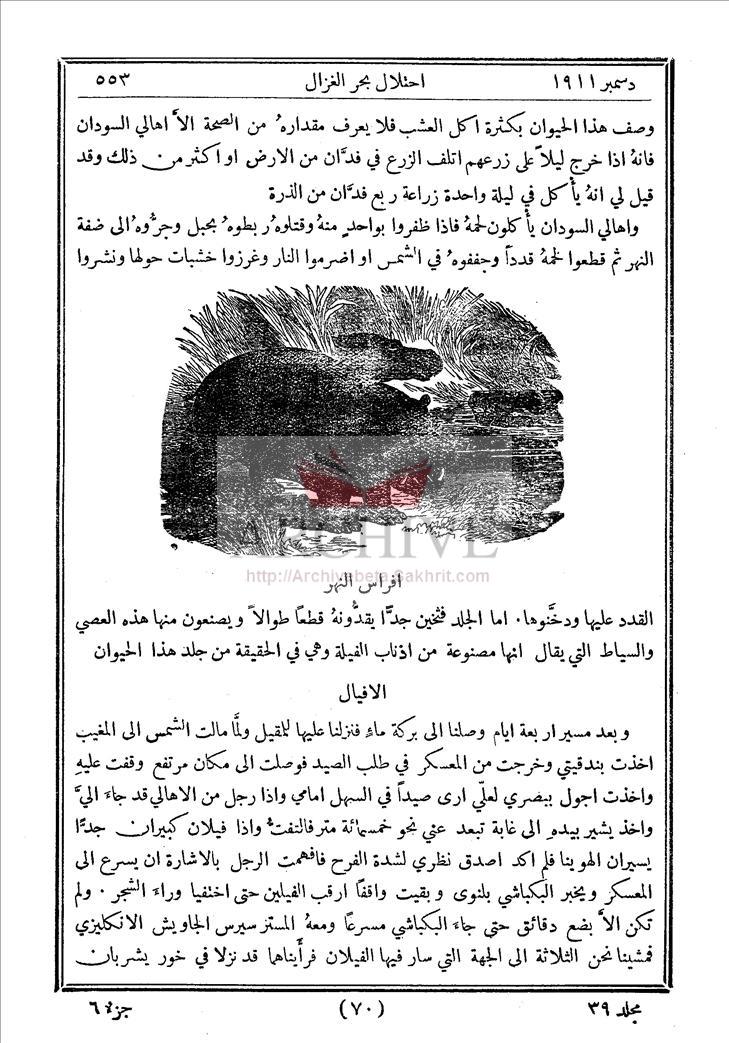 دسمبر ١٩١١ احتلال بحر الغزال ٥٥٣
وصف هذا الحيوان بكثرة اكل العشب فلا يعرف مقداره من الصحة الاَّ اهالي السودان
فانهُ اذا خرج ليلاً على زرعهم اتلف الزرع في فدَّان من الارض او اكثر من ذلك وقد
قيل لي انهُ يأكل في ليلة واحدة زراعة ربع فدَّان من الذرة
واهالي السودان يأكلون لحمهُ فاذا ظفروا بواحدٍ منهُ وقتلوهُ ربطوهُ بحبل وجرُّوهُ الى ضفة
النهر ثم قطعوا لحمهُ قدداً وجففوهُ في الشمس او اضرموا النار وغرزوا خشبات حولها ونشروا
ARCHIVE
http://Archivebeta.Sakhrit.com
افراس النهر
القدد عليها ودخَّنوها. اما الجلد فثخين جدًّا يقدُّونهُ قطعاً طوالاً ويصنعون منها هذه العصي
والسياط التي يقال انها مصنوعة من اذناب الفيلة وهي في الحقيقة من جلد هذا الحيوان
الافيال
وبعد مسير اربعة ايام وصلنا الى بركة ماءٍ فنزلنا عليها للمقيل ولمَّا مالت الشمس الى المغيب
اخذت بندقيتي وخرجت من المعسكر في طلب الصيد فوصلت الى مكان مرتفع وقفت عليهِ
واخذت اجول ببصري لعلّي ارى صيداً في السهل امامي واذا رجل من الاهالي قد جاءَ اليَّ
واخذ يشير بيدهِ الى غابة تبعد عني نحو خمسمائة متر فالتفتُّ واذا فيلان كبيران جدًّا
يسيران الهوينا فلم اكد اصدق نظري لشدة الفرح فافهمت الرجل بالاشارة ان يسرع الى
المعسكر ويخبر البكباشي بلنوى وبقيت واقفاً ارقب الفيلين حتى اختفيا وراءَ الشجر. ولم
تكن الاَّ بضع دقائق حتى جاءَ البكباشي مسرعاً ومعهُ المستر سيرس الجاويش الانكليزي
فمشينا نحن الثلاثة الى الجهة التي سار فيها الفيلان فرأيناهما قد نزلا في خور يشربان
مجلد ٣٩ (٧٠) جزء ٦